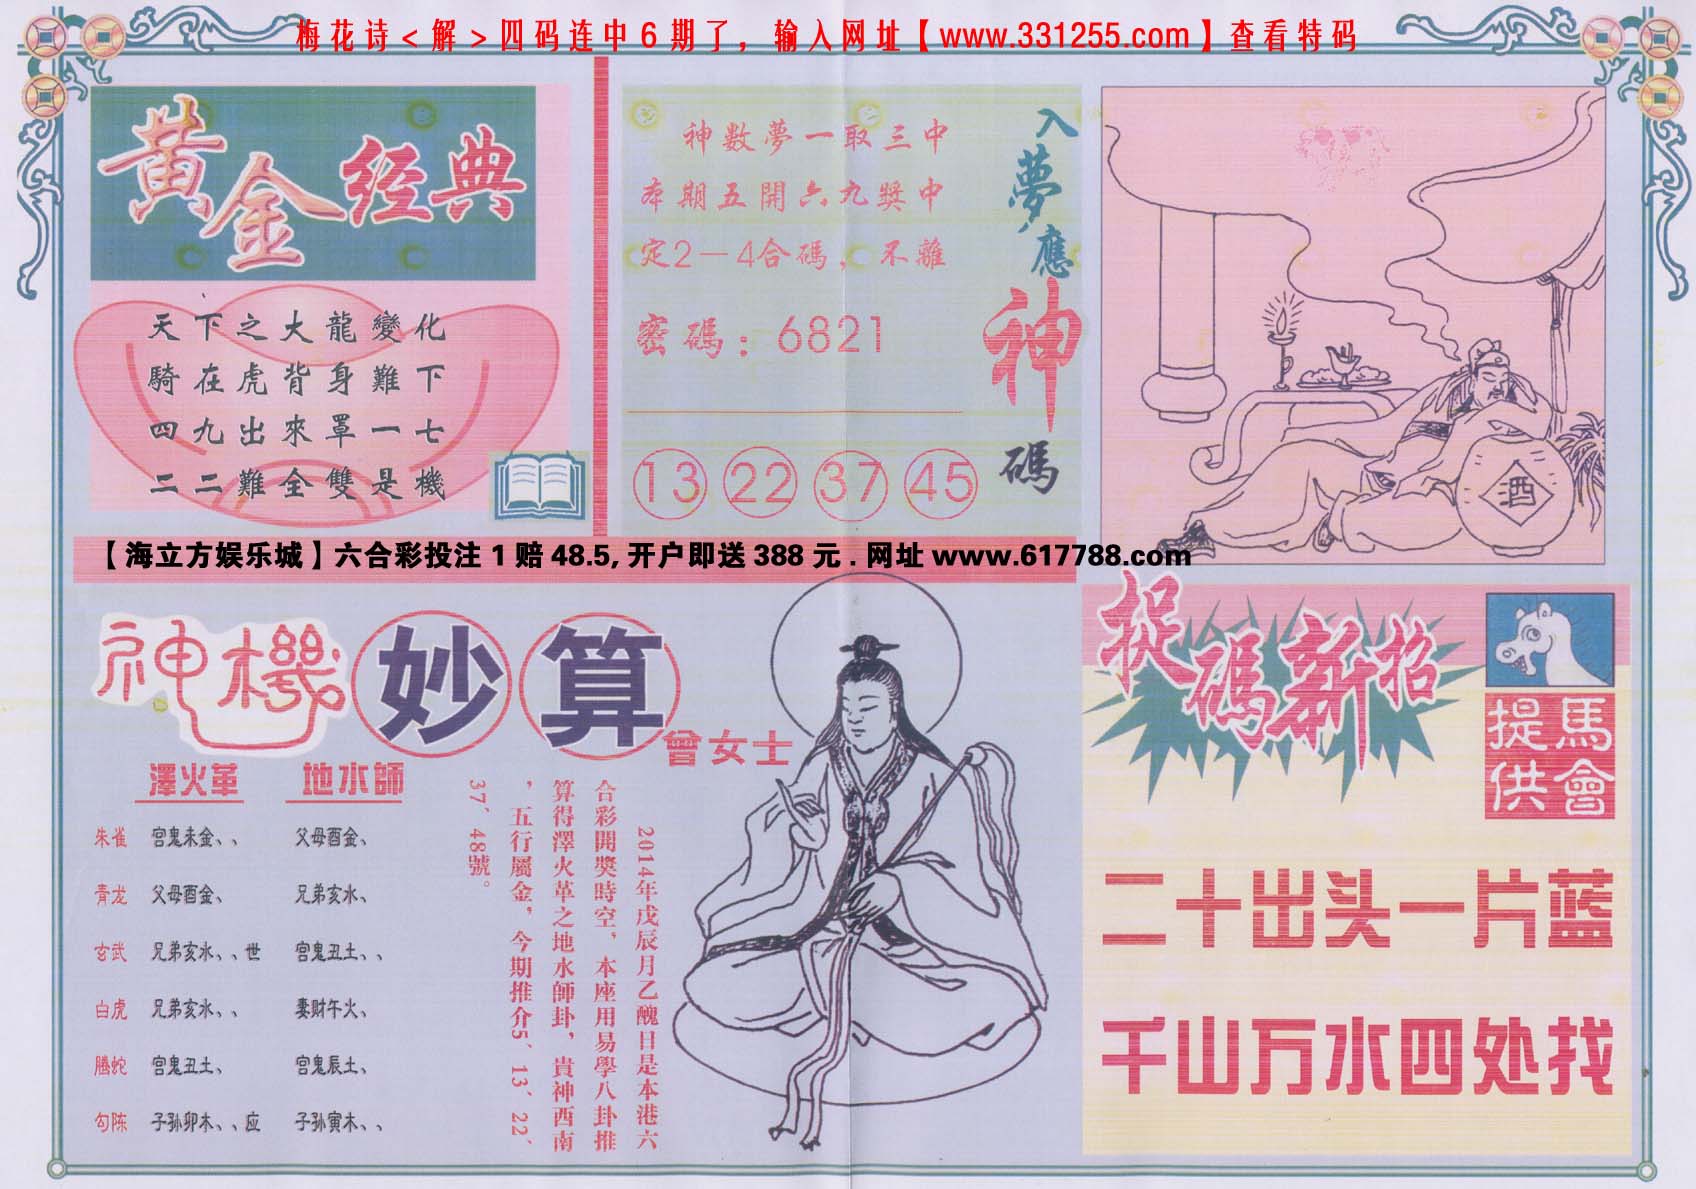 梅花诗<解>四码连中6期了，输入网址【www.331255.com】查看特码
黄金经典
天下之大龍變化
騎在虎背身難下
四九出來罩一七
二二難全雙是機
神數夢一取三中
本期五開六九獎中
定2—4合碼，不離
密碼：6821
13 22 37 45
入夢應神碼
酒
【海立方娱乐城】六合彩投注1赔48.5,开户即送388元.网址www.617788.com
神機妙算
曾女士
澤火革 地水師
朱雀 宫鬼未金、、 父母酉金、
青龙 父母酉金、 兄弟亥水、
玄武 兄弟亥水、、世 宫鬼丑土、、
白虎 兄弟亥水、、 妻财午火、
螣蛇 宫鬼丑土、 宫鬼辰土、
勾陈 子孙卯木、、应 子孙寅木、、
2014年戊辰月乙醜日是本港六
合彩開獎時空，本座用易學八卦推
算得澤火革之地水師卦，貴神西南
，五行屬金，今期推介5、13、22、
37、48號。
捉碼新招
馬會提供
二十出头一片蓝
千山万水四处找